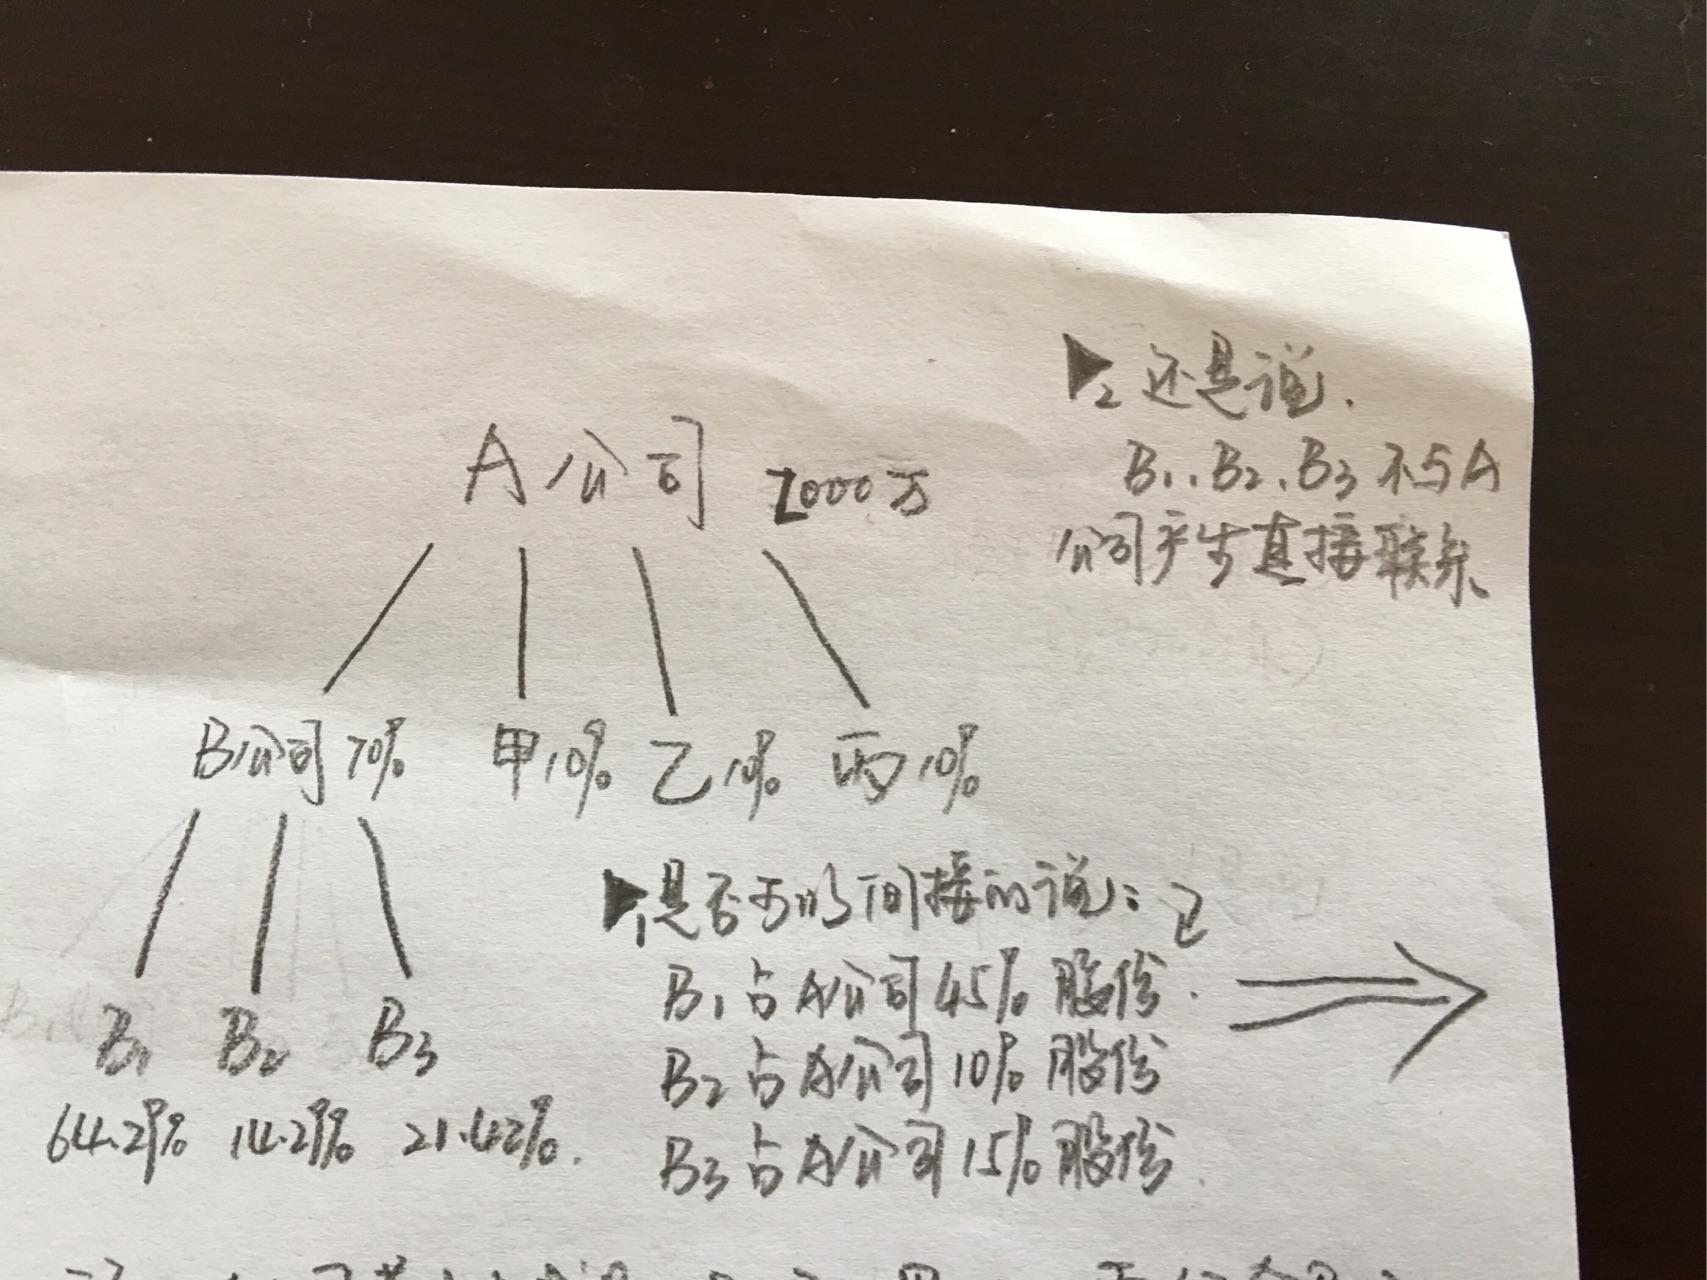 A公司 2000万
B公司 70% 甲 10% 乙 10% 丙 10%
B1 B2 B3
64.29% 14.29% 21.42%.
▶1 是否可以间接的说:
B1 占 A公司 45% 股份.
B2 占 A公司 10% 股份
B3 占 A公司 15% 股份.
▶2 还是说.
B1、B2、B3 不与A
公司产生直接联系、